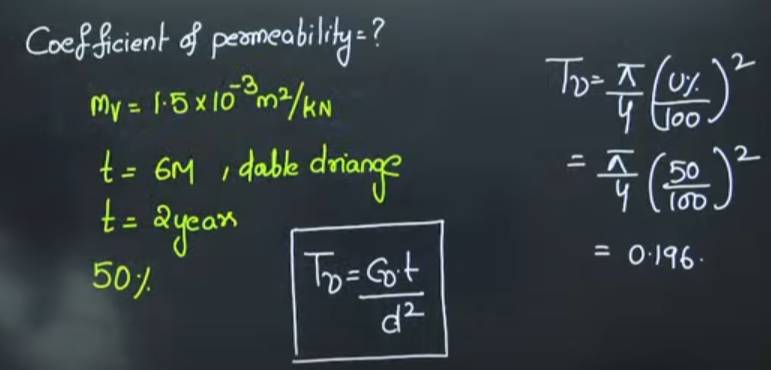 Coefficient of permeability = ?
mv = 1.5 x 10⁻³ m²/kN
t = 6M , dable driange
t = 2 years
50%
Tv = Cv.t / d²
Tv = π/4 (U%/100)²
= π/4 (50/100)²
= 0.196.